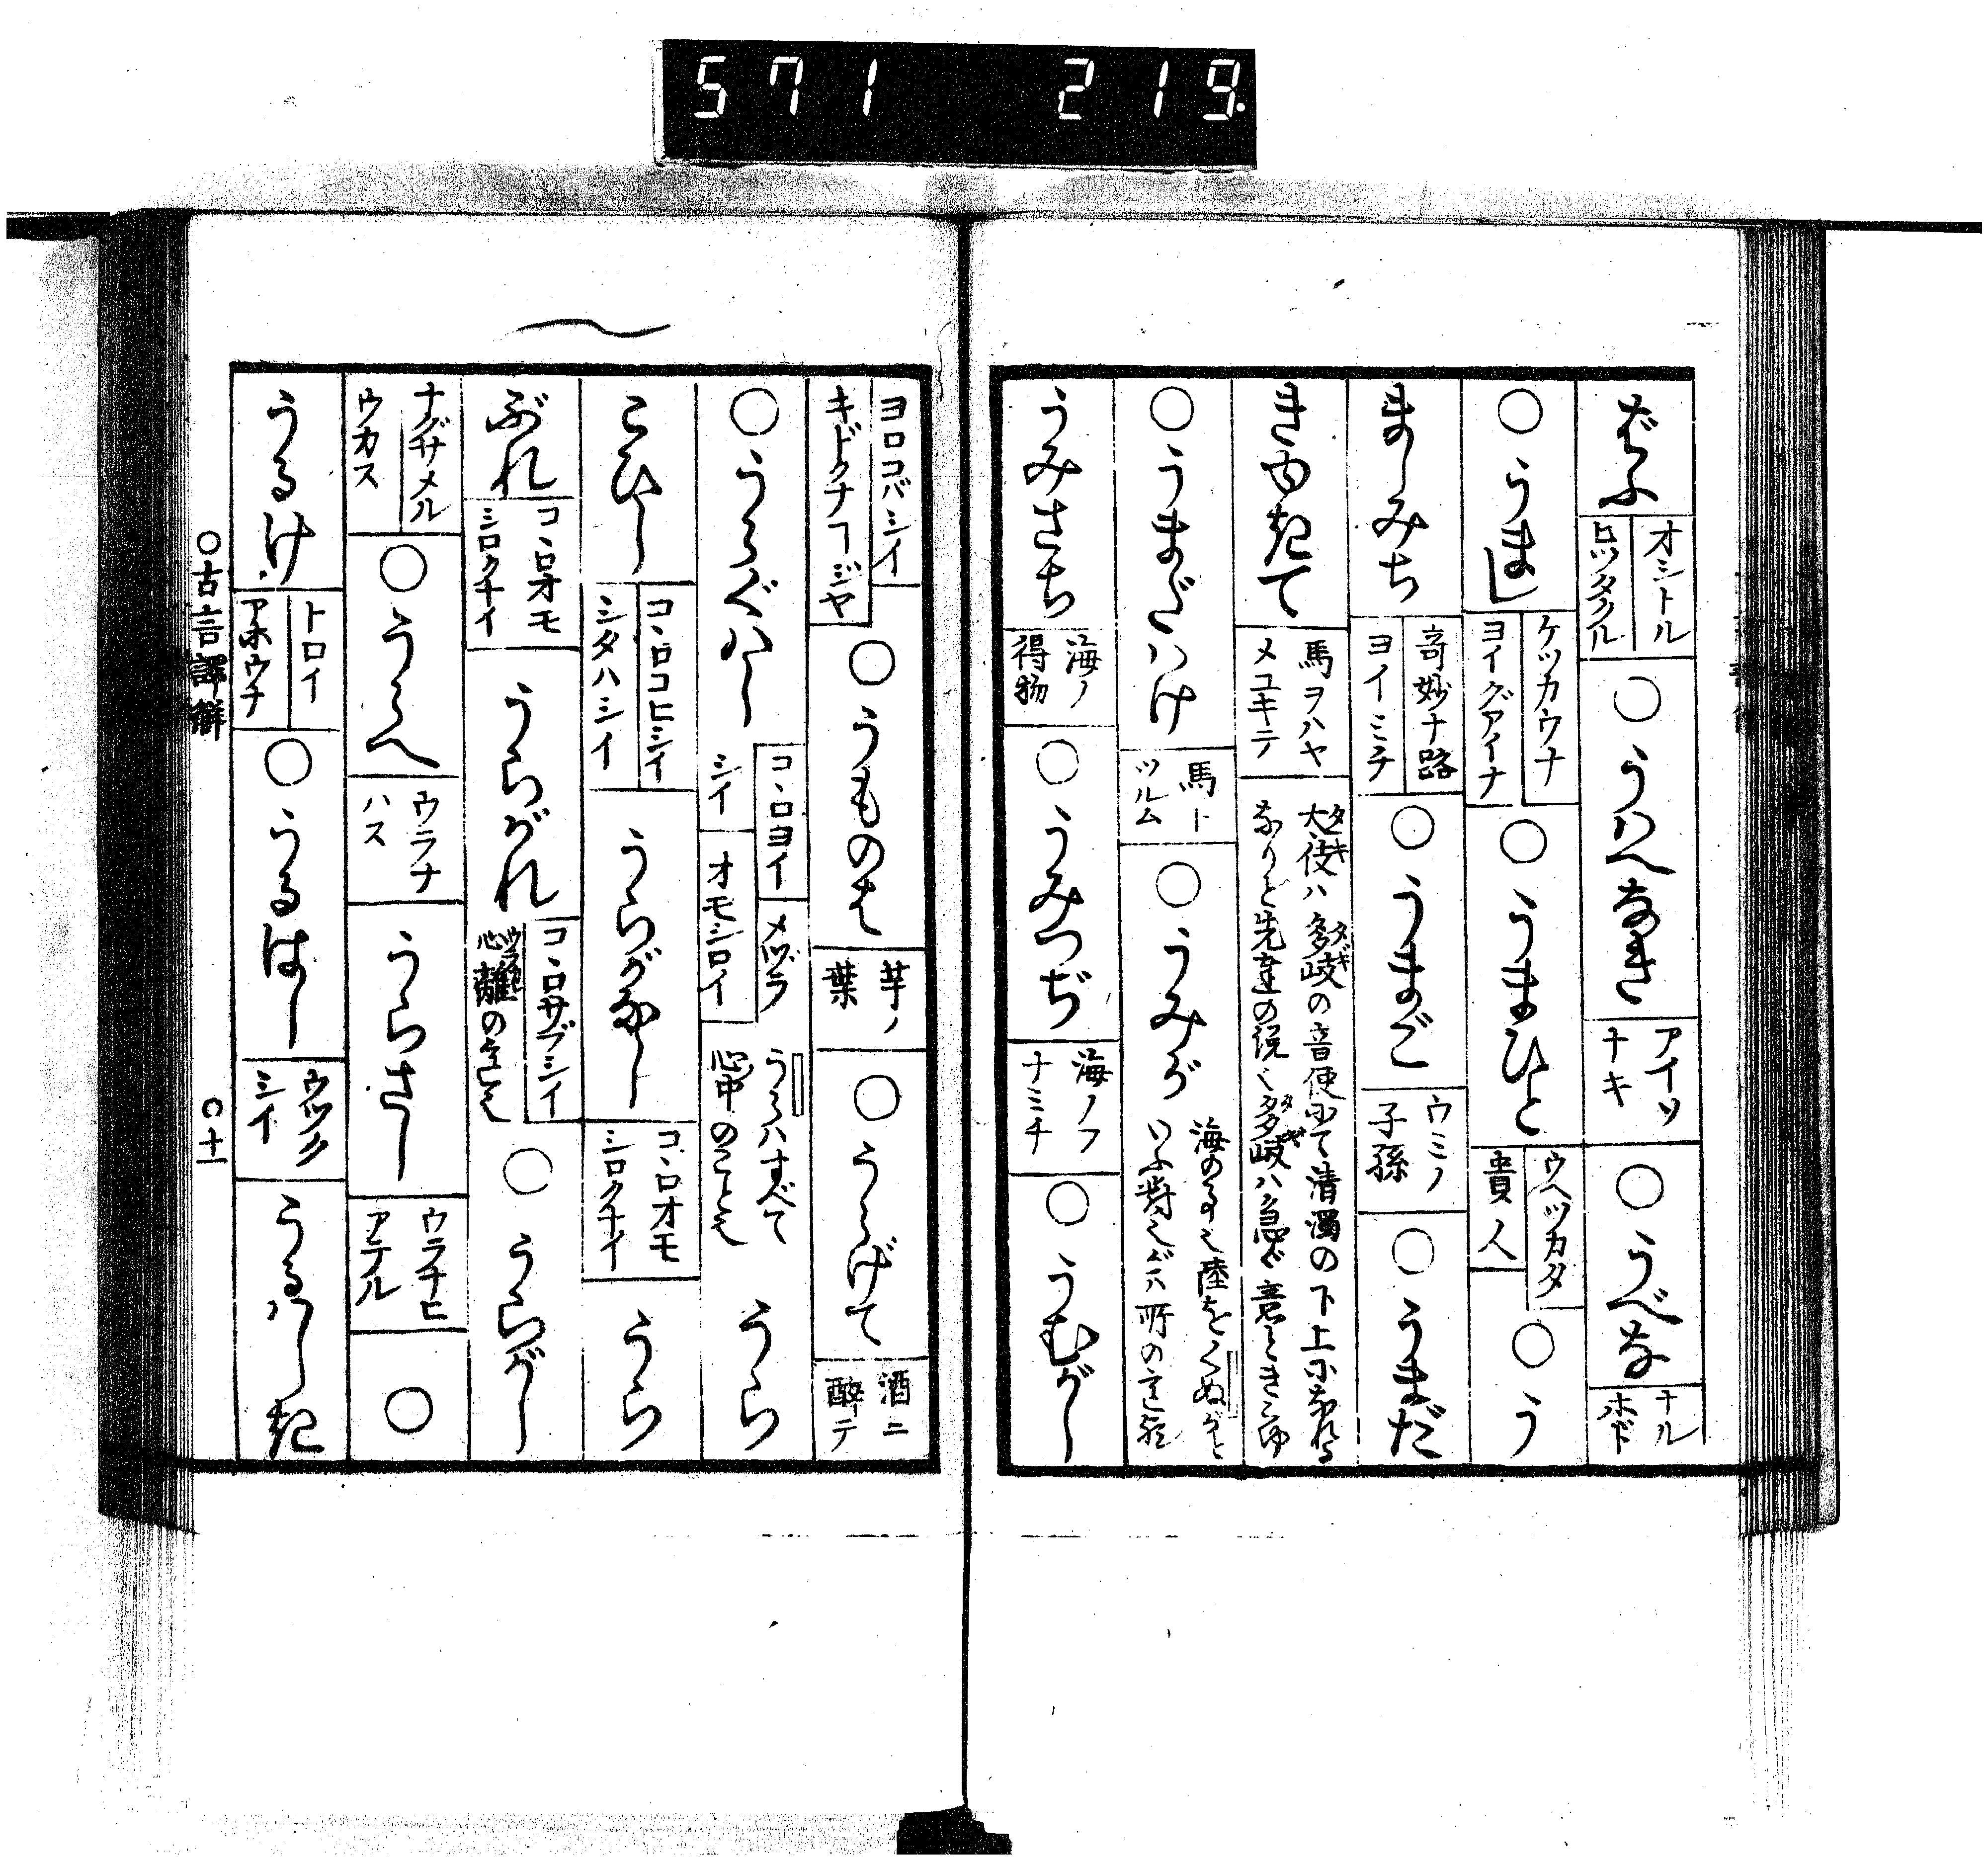 571 219
ばふ オシトル ヒツタクル ○うはへなき アイソナキ ○うべな ナルホド
○うまし ケツカウナ ヨイグアイナ ○うまひと ウヘツカタ 貴人 ○う
ましみち 奇妙ナ路 ヨイミチ ○うまご ウミノ子孫 ○うまだ
きゆきて 馬ヲハヤメユキテ 大伎ハ多岐の音便にて清濁の下上になれる
なりと先達の説く多岐ハ急ぐ意ときこゆ
○うまぐはけ 馬トツルム ○うみが 海のる 陸をくぬがと
いふ對 がハ所の
うみさち 海ノ得物 ○うみつぢ 海ノフナミチ ○うむがし
ヨロコバシイ キドクナコジヤ ○うものは 芋ノ葉 ○うらげて 酒ニ醉テ
○うらぐはし コヽロヨイ メヅラシイ オモシロイ うらハすべて心中のこと うら
こひし コヽロコヒシイ シタハシイ うらがなし コヽロオモシロクナイ うら
ぶれ コヽロオモシロクナイ うらがれ コヽロサブシイ 心離の ○うらがし
ナグサメル ウカス ○うらへ ウラナハス うらさし ウラナヒアテル ○
うるけ トロイ アホウナ ○うるはし ウツクシイ うるはしき
○古言譯解 ○十一